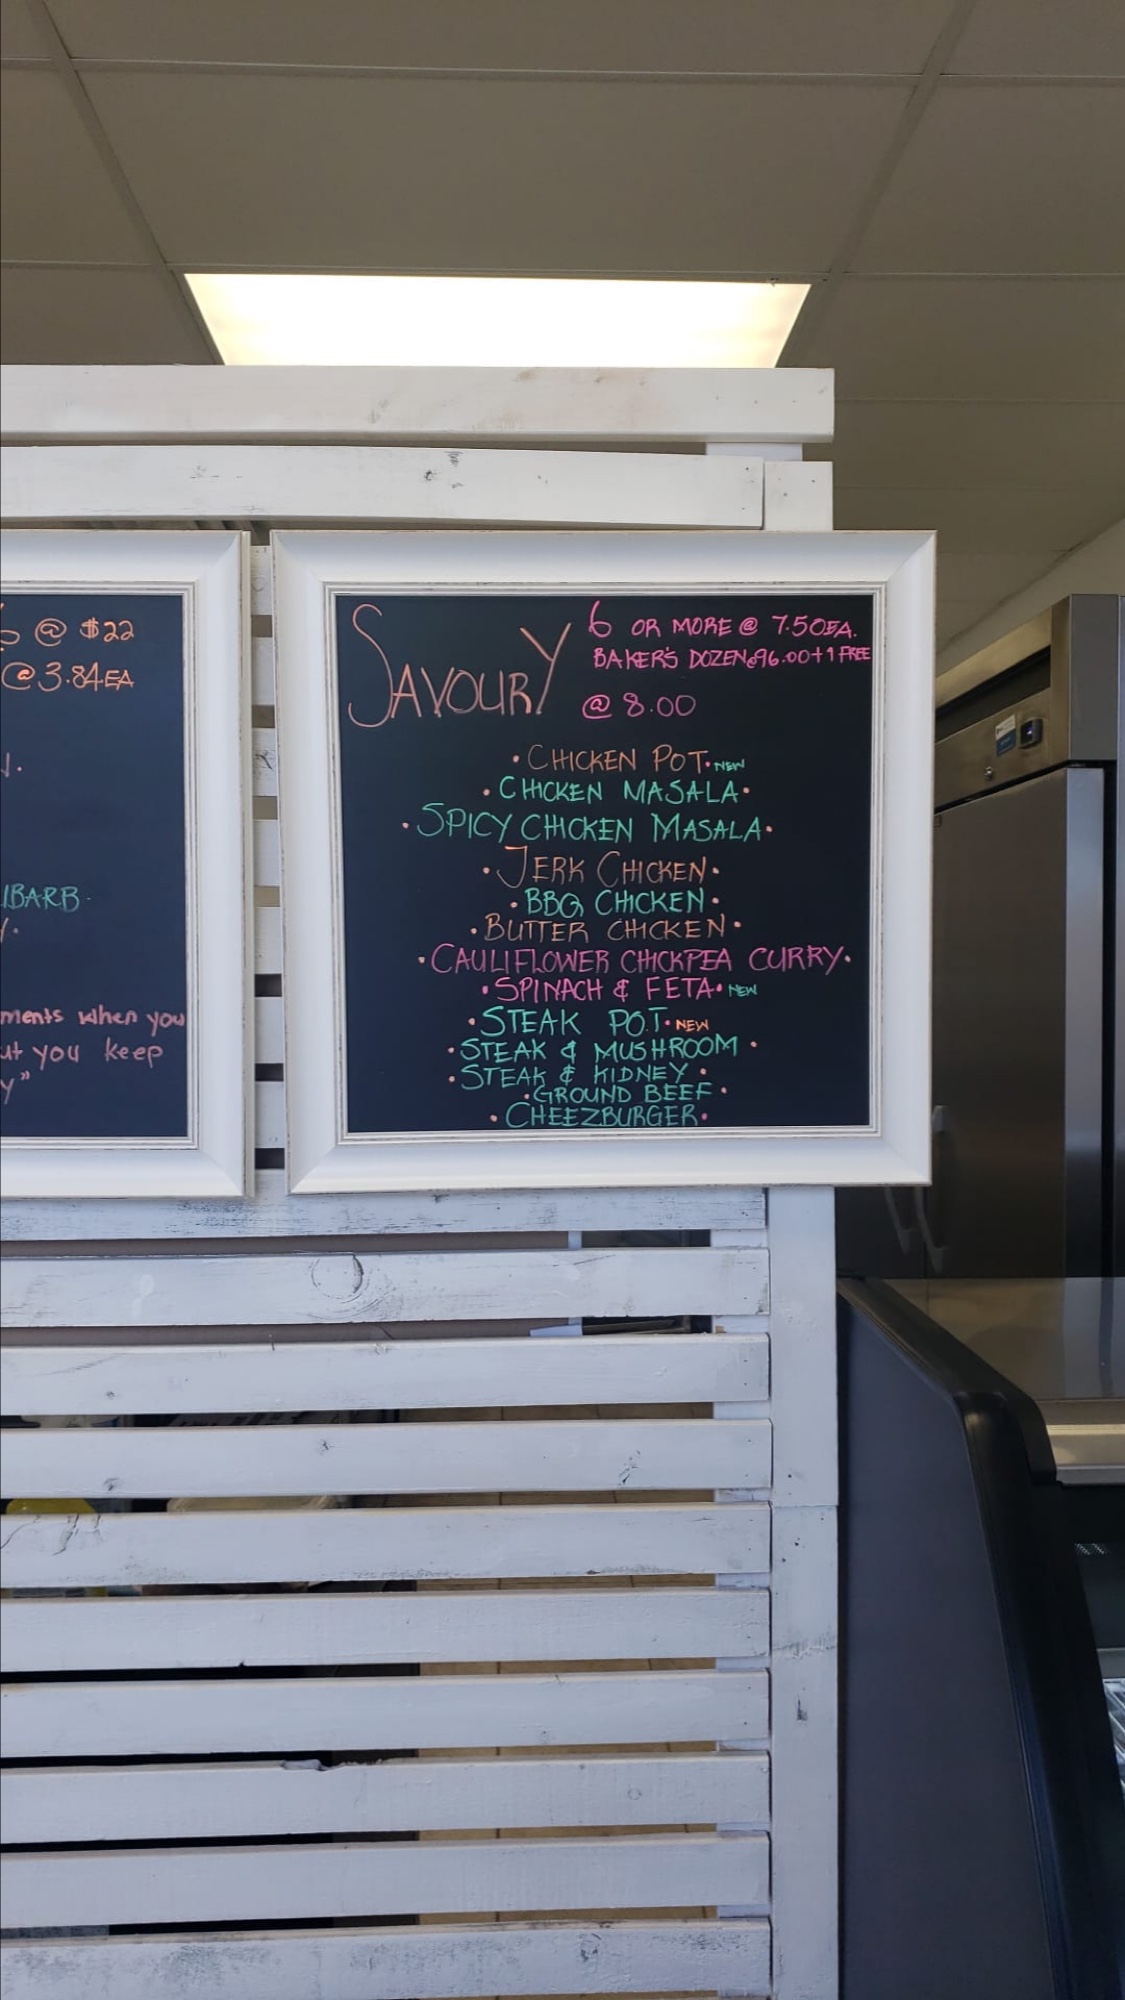 @ $22
@ 3.84EA
ments when you
you keep
SAVOURY
6 OR MORE @ 7.50EA.
BAKER'S DOZEN@96.00+1 FREE
@ 8.00
• CHICKEN POT • NEW
• CHICKEN MASALA •
• SPICY CHICKEN MASALA •
• JERK CHICKEN •
• BBQ CHICKEN •
• BUTTER CHICKEN •
• CAULIFLOWER CHICKPEA CURRY •
• SPINACH & FETA • NEW
• STEAK POT • NEW
• STEAK & MUSHROOM •
• STEAK & KIDNEY •
• GROUND BEEF •
• CHEEZBURGER •